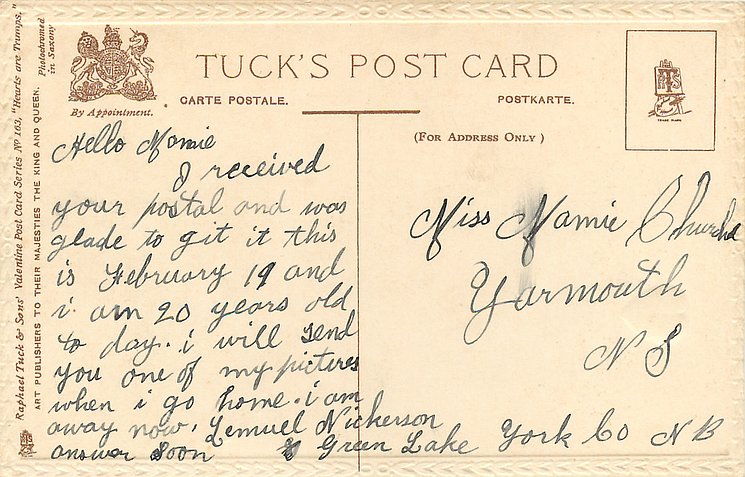 Raphael Tuck & Sons' Valentine Post Card Series Nº 163, "Hearts are Trumps,"
ART PUBLISHERS TO THEIR MAJESTIES THE KING AND QUEEN.
Photochromed
in Saxony
By Appointment.
TUCK'S POST CARD
CARTE POSTALE.
POSTKARTE.
(FOR ADDRESS ONLY)
TRADE MARK
Hello Mamie
I received
your postal and was
glade to git it this
is February 19 and
i am 20 years old
to day. i will send
you one of my pictires
when i go home. i am
away now. Lemuel Nickerson
answer soon
Green Lake York Co NB
Miss Mamie
Yarmouth
N S